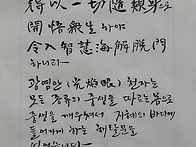 得以一切隨類身으로
開悟衆生 하야
令入智慧海解脫門
하니라
광염안 (光焰眼) 천자는
모든 종류의 중생을 따르는 몸으로
중생을 깨우쳐서 지혜의 바다에
들어가게 하는 해탈문을